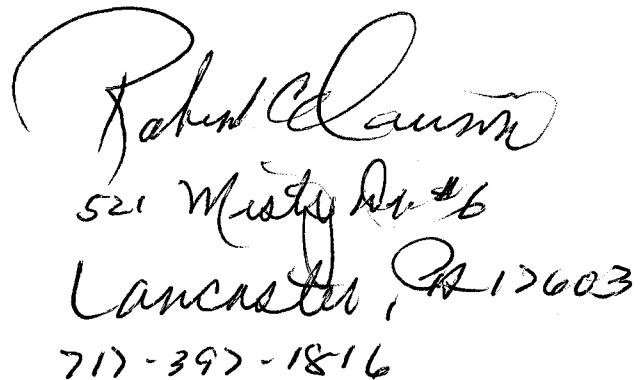 Robert C Clawson
521 Misty Dr. #6
Lancaster, PA 17603
717-397-1816